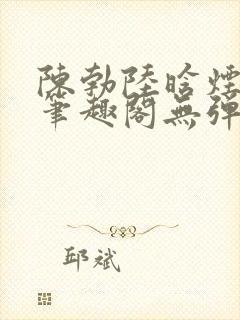 陳勃陸晗煙
筆趣閣無彈
邱斌